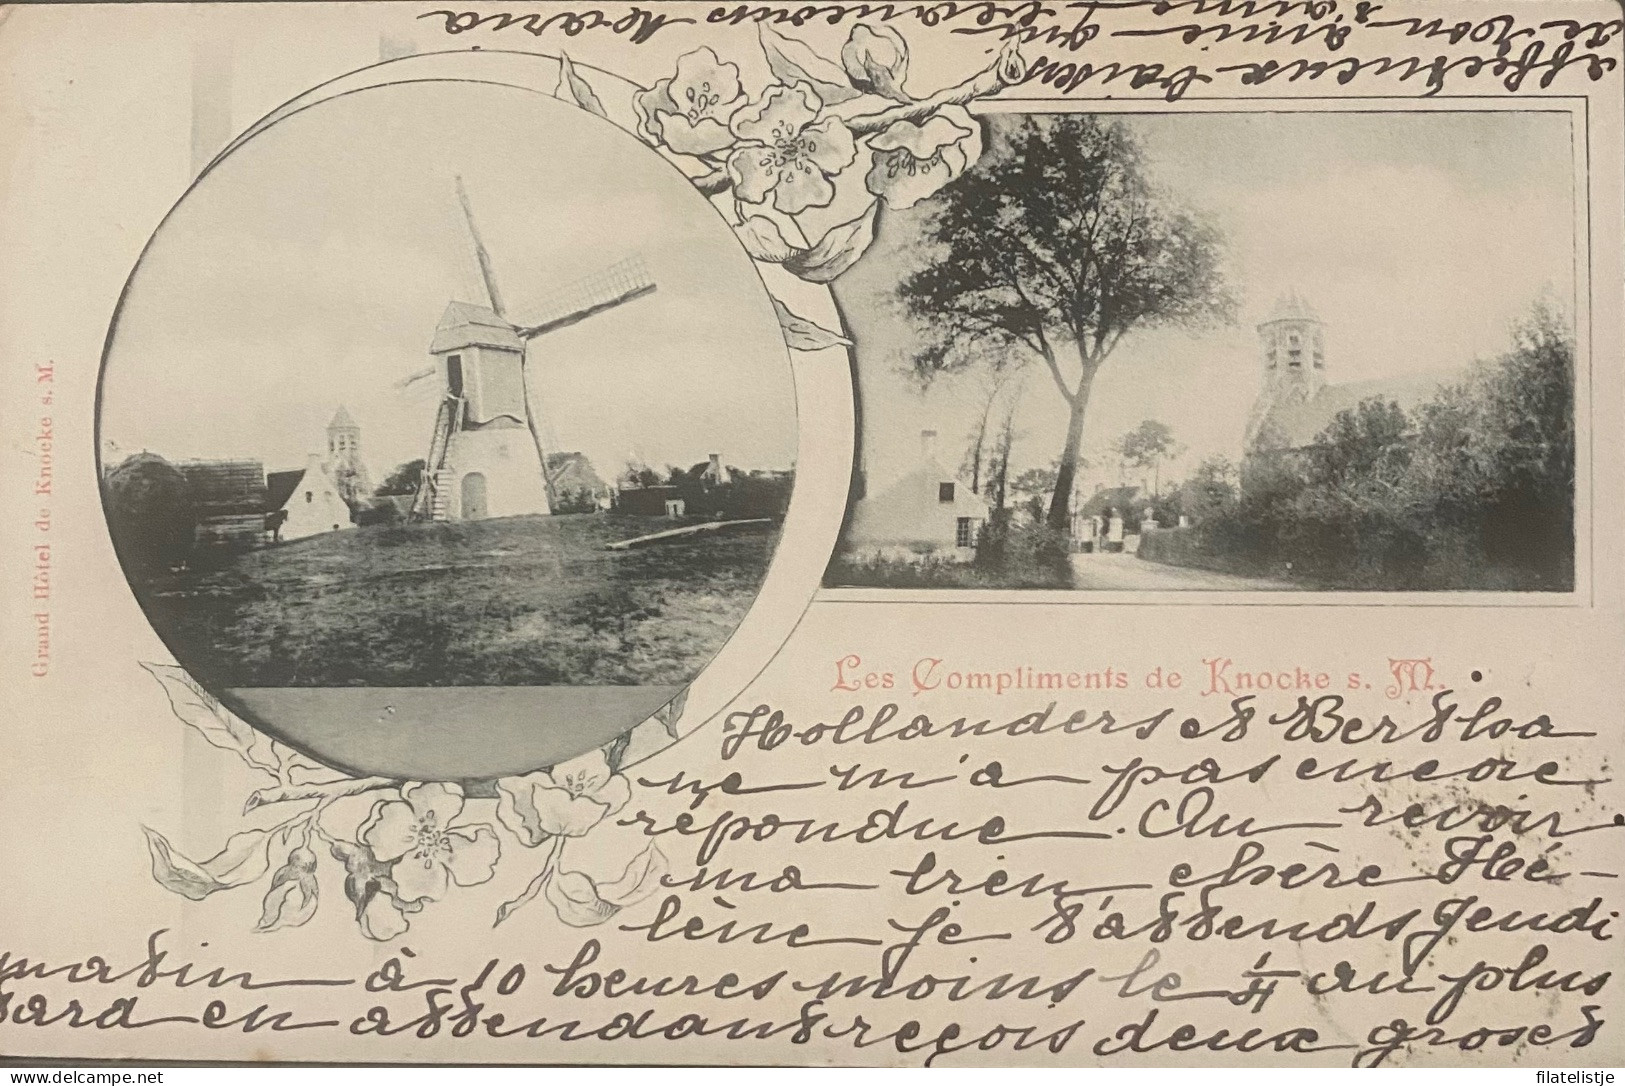 Grand Hôtel de Knocke s. M.
Les Compliments de Knocke s. M.
Hollanders et Bertha
ne m'a pas encore
répondue. Au revoir
ma bien chère Hé-
lène je t'attends Jeudi
matin à 10 heures moins le 1/4 au plus
tard en attendant reçois deux groset
affectueux baisers
de ton amie qui
t'aime beaucoup Maria
filatelistje